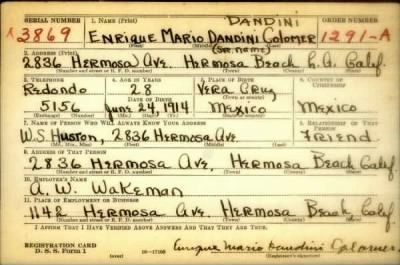 DANDINI
SERIAL NUMBER 1. NAME (Print) ORDER NUMBER
3869 ENRIQUE MARIO DANDINI COLOMER 1291-A
(First) (Middle) (SR. NAME) (Last)
2. ADDRESS (Print)
2836 HERMOSA AVE. HERMOSA BEACH L.A. CALIF.
(Number and street or R. F. D. number) (Town) (County) (State)
3. TELEPHONE 4. AGE IN YEARS 5. PLACE OF BIRTH 6. COUNTRY OF CITIZENSHIP
REDONDO 28 VERA CRUZ
DATE OF BIRTH (Town or county)
5156 June 24, 1914 MEXICO MEXICO
(Exchange) (Number) (Mo.) (Day) (Yr.) (State or country)
7. NAME OF PERSON WHO WILL ALWAYS KNOW YOUR ADDRESS 8. RELATIONSHIP OF THAT PERSON
W.S. HUSTON, 2836 HERMOSA AVE. FRIEND
(Mr., Mrs., Miss) (First) (Middle) (Last)
9. ADDRESS OF THAT PERSON
2836 HERMOSA AVE, HERMOSA BEACH CALIF
(Number and street or R. F. D. number) (Town) (County) (State)
10. EMPLOYER'S NAME
A. W. WAKEMAN
11. PLACE OF EMPLOYMENT OR BUSINESS
1142 HERMOSA AVE. HERMOSA BEACH, CALIF
(Number and street or R. F. D. number) (Town) (County) (State)
I AFFIRM THAT I HAVE VERIFIED ABOVE ANSWERS AND THAT THEY ARE TRUE.
REGISTRATION CARD
D. S. S. Form 1 (over) 16—17105 Enrique Mario Dandini Colomer